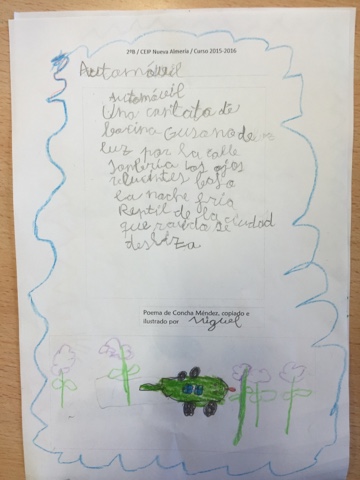 2ºB / CEIP Nueva Almería / Curso 2015-2016
Automóvil
Automóvil
Una cantata de
bocina Gusano de
luz por la calle
Los ojos
relucientes bajo
la noche fría
Reptil de la ciudad
que rauda se
desliza
Poema de Concha Méndez, copiado e
ilustrado por Miguel